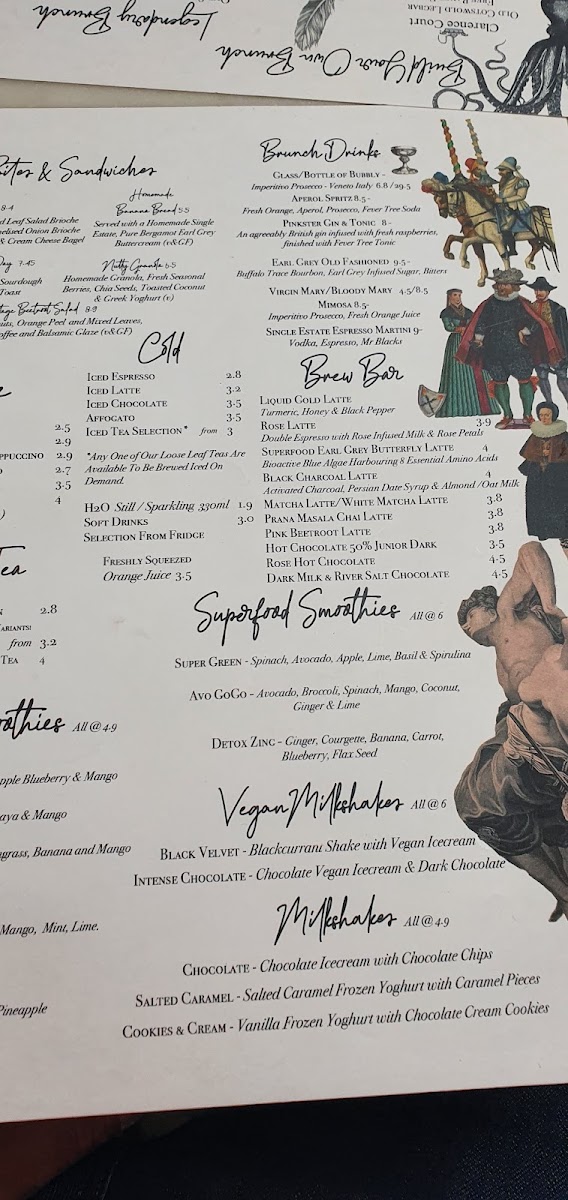 Legendary Brunch
Build Your Own Brunch
Clarence Court
Old Cotswold Legbar
Bites & Sandwiches
8.4
d Leaf Salad Brioche
elised Onion Brioche
& Cream Cheese Bagel
Day 7.45
Sourdough
Toast
tage Beetroot Salad 8.9
uts, Orange Peel and Mixed Leaves,
offee and Balsamic Glaze (v&GF)
Homemade
Banana Bread 5.5
Served with a Homemade Single
Estate, Pure Bergamot Earl Grey
Buttercream (v&GF)
Nutty Granola 6.5
Homemade Granola, Fresh Seasonal
Berries, Chia Seeds, Toasted Coconut
& Greek Yoghurt (v)
Brunch Drinks
Glass/Bottle of Bubbly -
Imperitivo Prosecco - Veneto Italy 6.8 / 29.5
Aperol Spritz 8.5 -
Fresh Orange, Aperol, Prosecco, Fever Tree Soda
Pinkster Gin & Tonic 8 -
An agreeably British gin infused with fresh raspberries,
finished with Fever Tree Tonic
Earl Grey Old Fashioned 9.5 -
Buffalo Trace Bourbon, Earl Grey Infused Sugar, Bitters
Virgin Mary/Bloody Mary 4.5/8.5
Mimosa 8.5-
Imperitivo Prosecco, Fresh Orange Juice
Single Estate Espresso Martini 9-
Vodka, Espresso, Mr Blacks
Cold
Iced Espresso 2.8
Iced Latte 3.2
Iced Chocolate 3.5
Affogato 3.5
Iced Tea Selection* from 3
*Any One of Our Loose Leaf Teas Are
Available To Be Brewed Iced On
Demand.
H2O Still / Sparkling 330ml 1.9
Soft Drinks 3.0
Selection From Fridge
Freshly Squeezed
Orange Juice 3.5
2.5
2.9
ppuccino 2.9
2.7
3.5
4
Tea
2.8
ariants:
from 3.2
Tea 4
Brew Bar
Liquid Gold Latte
Turmeric, Honey & Black Pepper
Rose Latte 3.9
Double Espresso with Rose Infused Milk & Rose Petals
Superfood Earl Grey Butterfly Latte 4
Bioactive Blue Algae Harbouring 8 Essential Amino Acids
Black Charcoal Latte 4
Activated Charcoal, Persian Date Syrup & Almond /Oat Milk
Matcha Latte/White Matcha Latte 3.8
Prana Masala Chai Latte 3.8
Pink Beetroot Latte 3.8
Hot Chocolate 50% Junior Dark 3.5
Rose Hot Chocolate 4.5
Dark Milk & River Salt Chocolate 4.5
Superfood Smoothies All @ 6
Super Green - Spinach, Avocado, Apple, Lime, Basil & Spirulina
Avo GoGo - Avocado, Broccoli, Spinach, Mango, Coconut,
Ginger & Lime
Detox Zing - Ginger, Courgette, Banana, Carrot,
Blueberry, Flax Seed
oothies All @ 4.9
pple Blueberry & Mango
aya & Mango
grass, Banana and Mango
Mango, Mint, Lime.
Pineapple
Vegan Milkshakes All @ 6
Black Velvet - Blackcurrant Shake with Vegan Icecream
Intense Chocolate - Chocolate Vegan Icecream & Dark Chocolate
Milkshakes All @ 4.9
Chocolate - Chocolate Icecream with Chocolate Chips
Salted Caramel - Salted Caramel Frozen Yoghurt with Caramel Pieces
Cookies & Cream - Vanilla Frozen Yoghurt with Chocolate Cream Cookies